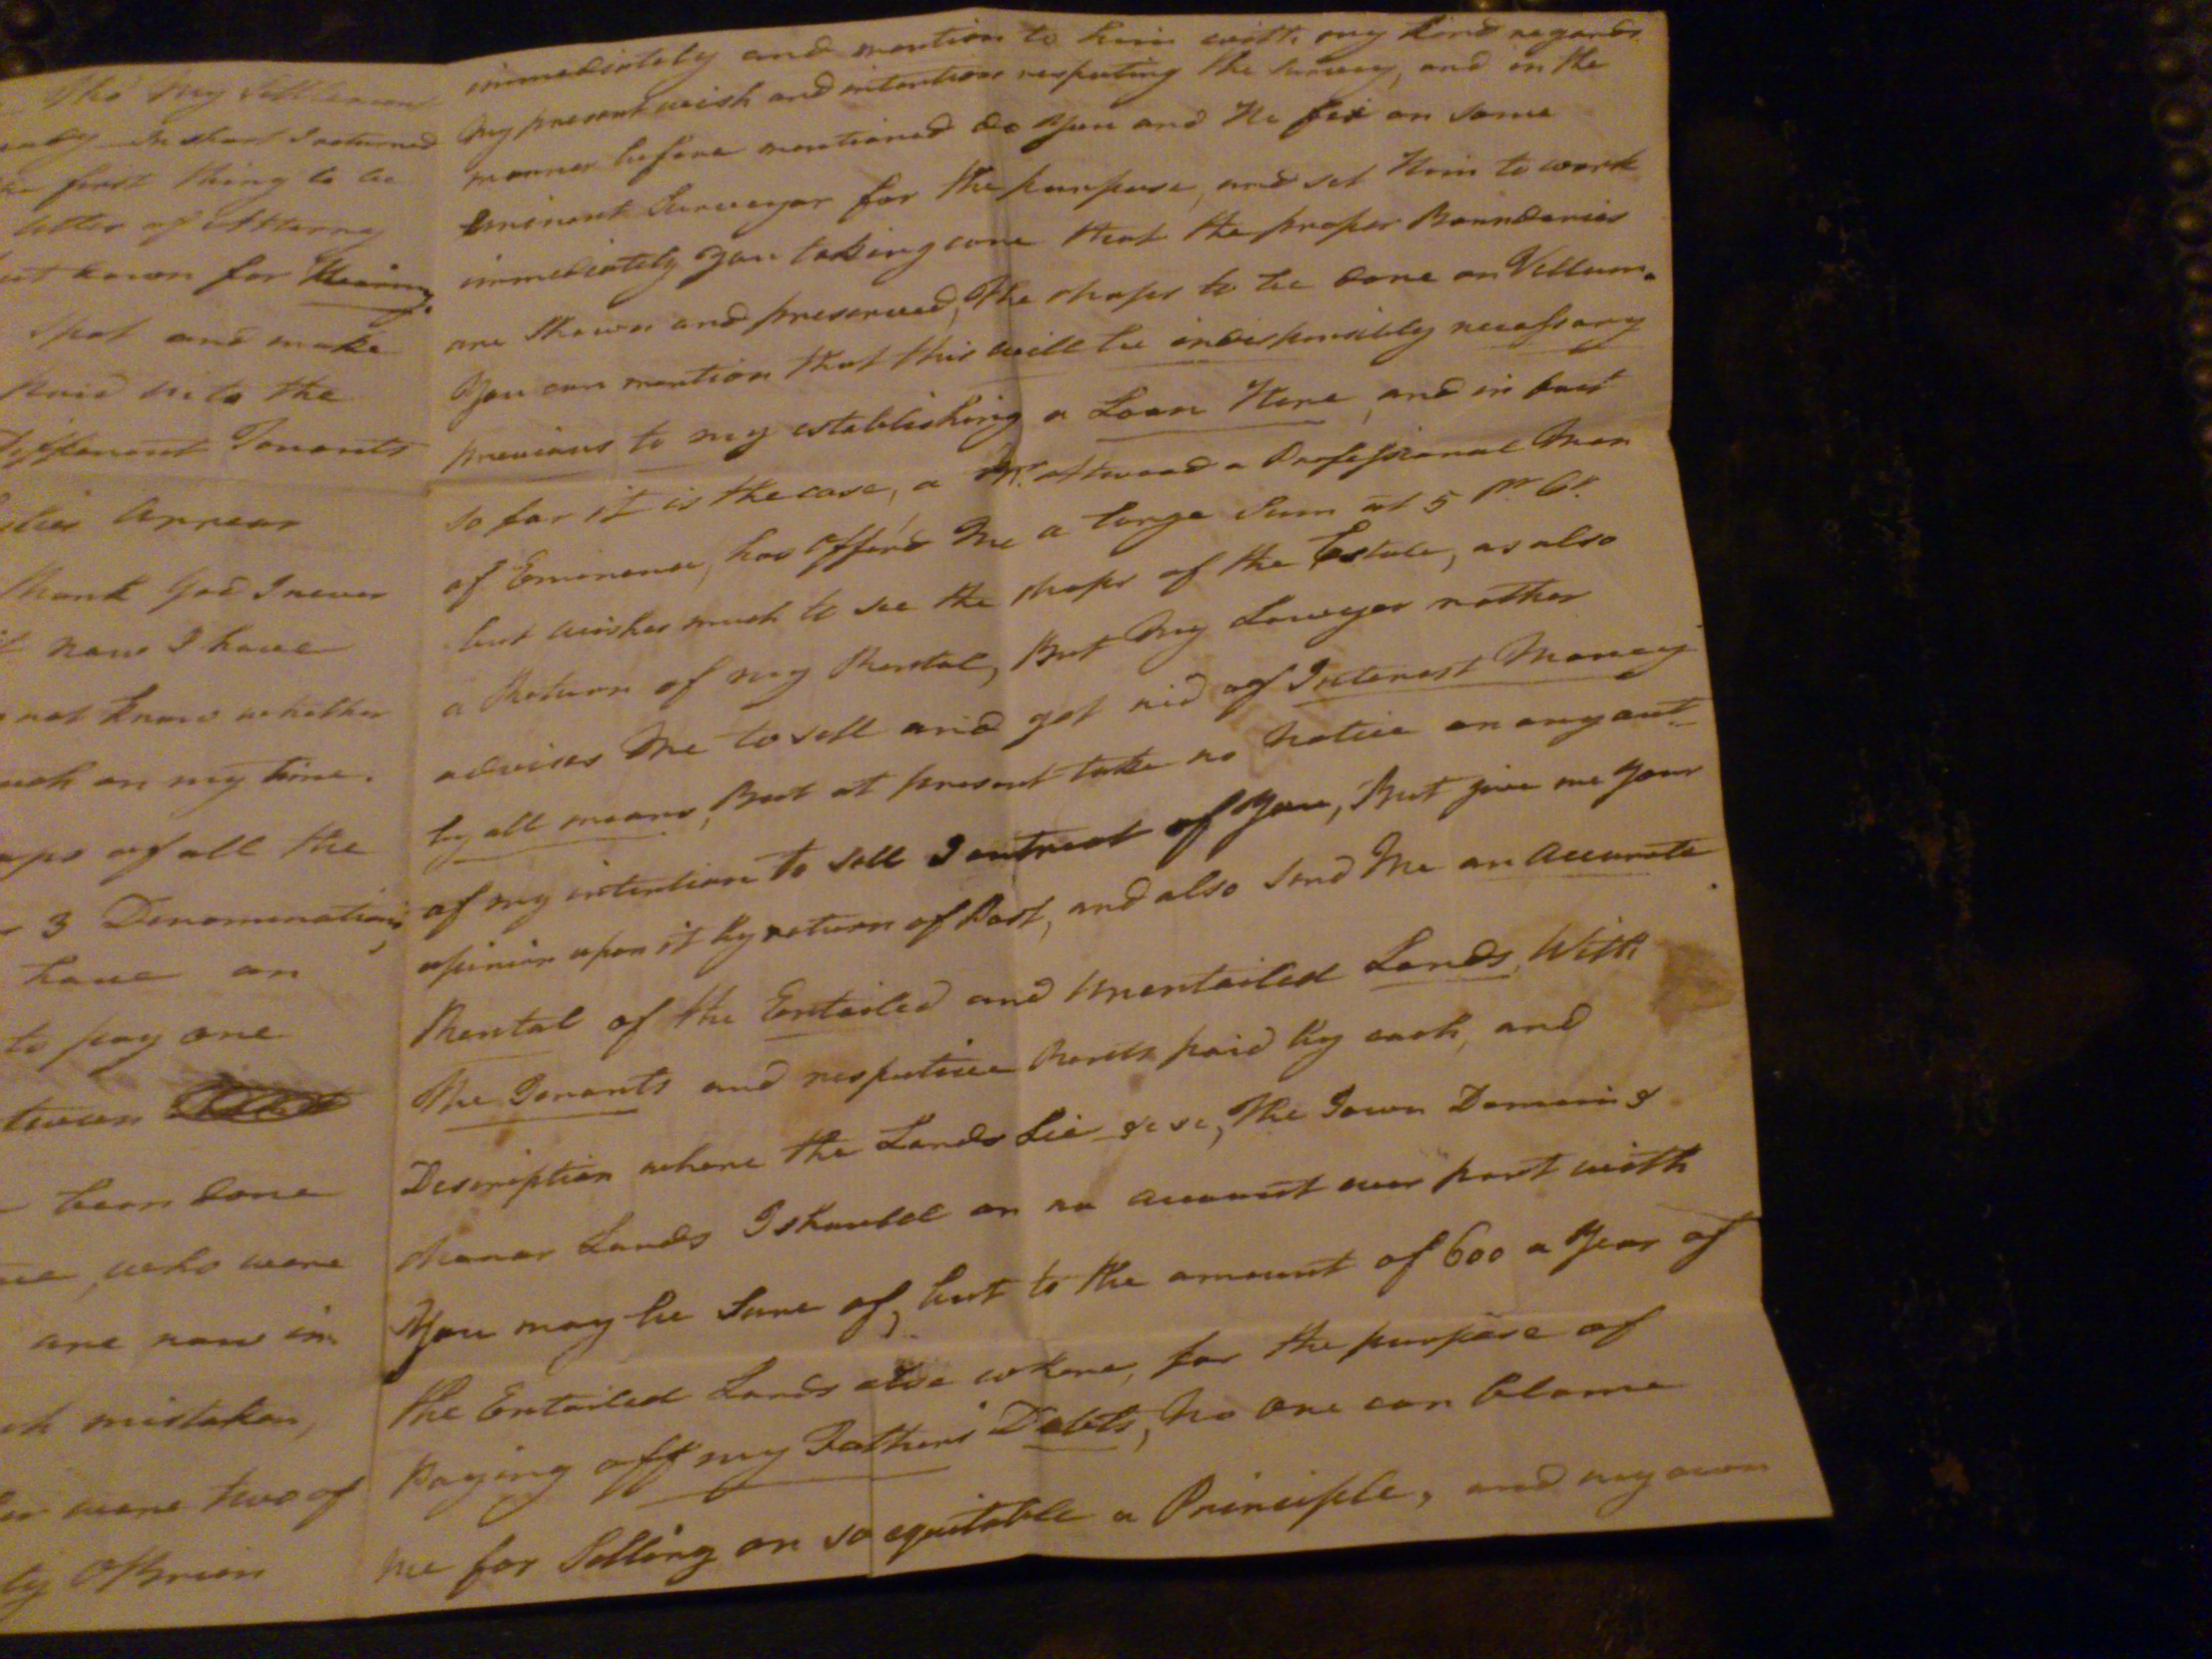 Tho' My Settlement
In short I returned
first thing to be
letter of Attorney
down for
Spot and make
paid into the
different Tenants
Arrear
thank God I never
now I have
not know whether
on my time.
of all the
3 Denominations,
have an
to pay one
been done
who were
are now in
mistaken,
were two of
OBrien
immediately and mention to him with my kind regards
My present wish and intention respecting the Survey, and in the
manner before mentioned do you and He fix on some
Eminent Surveyor for the purpose, and set Him to work
immediately you taking care that the proper Boundaries
are Shewn and preserved, The maps to be done on Vellum.
You can mention that this will be indispensibly necessary
previous to my establishing a Loan Here, and in fact
so far it is the case, a Mr. Attwood a Professional Man
of Eminence, has offer'd Me a large Sum at 5 pr Ct.
but wishes much to see the maps of the Estate, as also
a Return of my Rental, But My Lawyer rather
advises Me to sell and get rid of Interest Money
by all means, But at present take no notice on any acct.
of my intention to sell I entreat of You, But give me Your
opinion upon it by return of Post, and also Send Me an Accurate
Rental of the Entailed and Unentailed Lands With
The Tenants and respective Rents paid by each, and
Description where the Lands Lie &c &c, The Town Demesne &
Manor Lands I should on no account ever part with
You may be Sure of, but to the amount of 600 a Year of
the Entailed Lands else where, for the purpose of
Paying off my Fathers Debts, no one can blame
me for Selling on so equitable a Principle, and my own